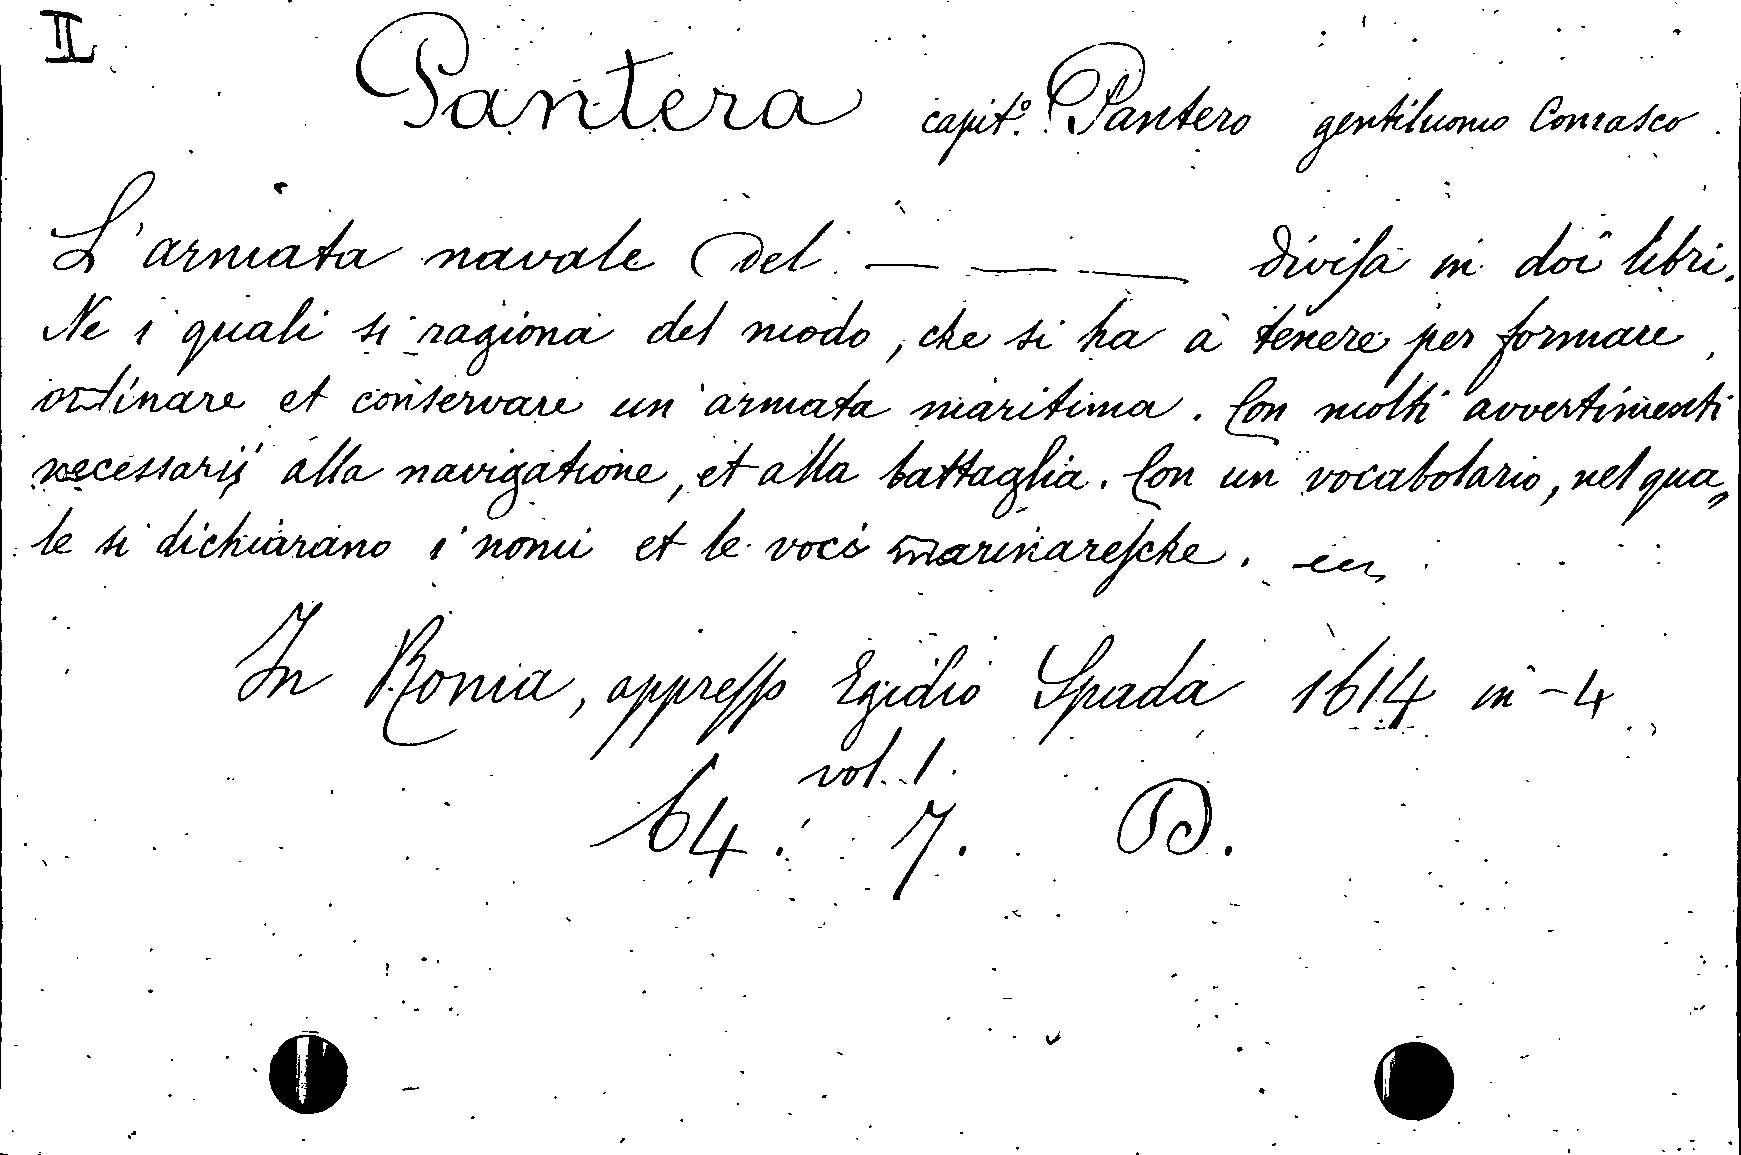 II
Pantera capit.º Pantero gentiluomo Comasco
L'armata navale del — — — divisa in doi libri.
Ne i quali si ragiona del modo, che si ha à tenere per formare,
ordinare et conservare un'armata maritima. Con molti avvertimenti
necessarij alla navigatione, et alla battaglia. Con un vocabolario, nel qua„
le si dichiarano i nomi et le voci marinaresche.
In Roma, appresso Egidio Spada 1614 in-4
vol. 1.
64. 7. D.